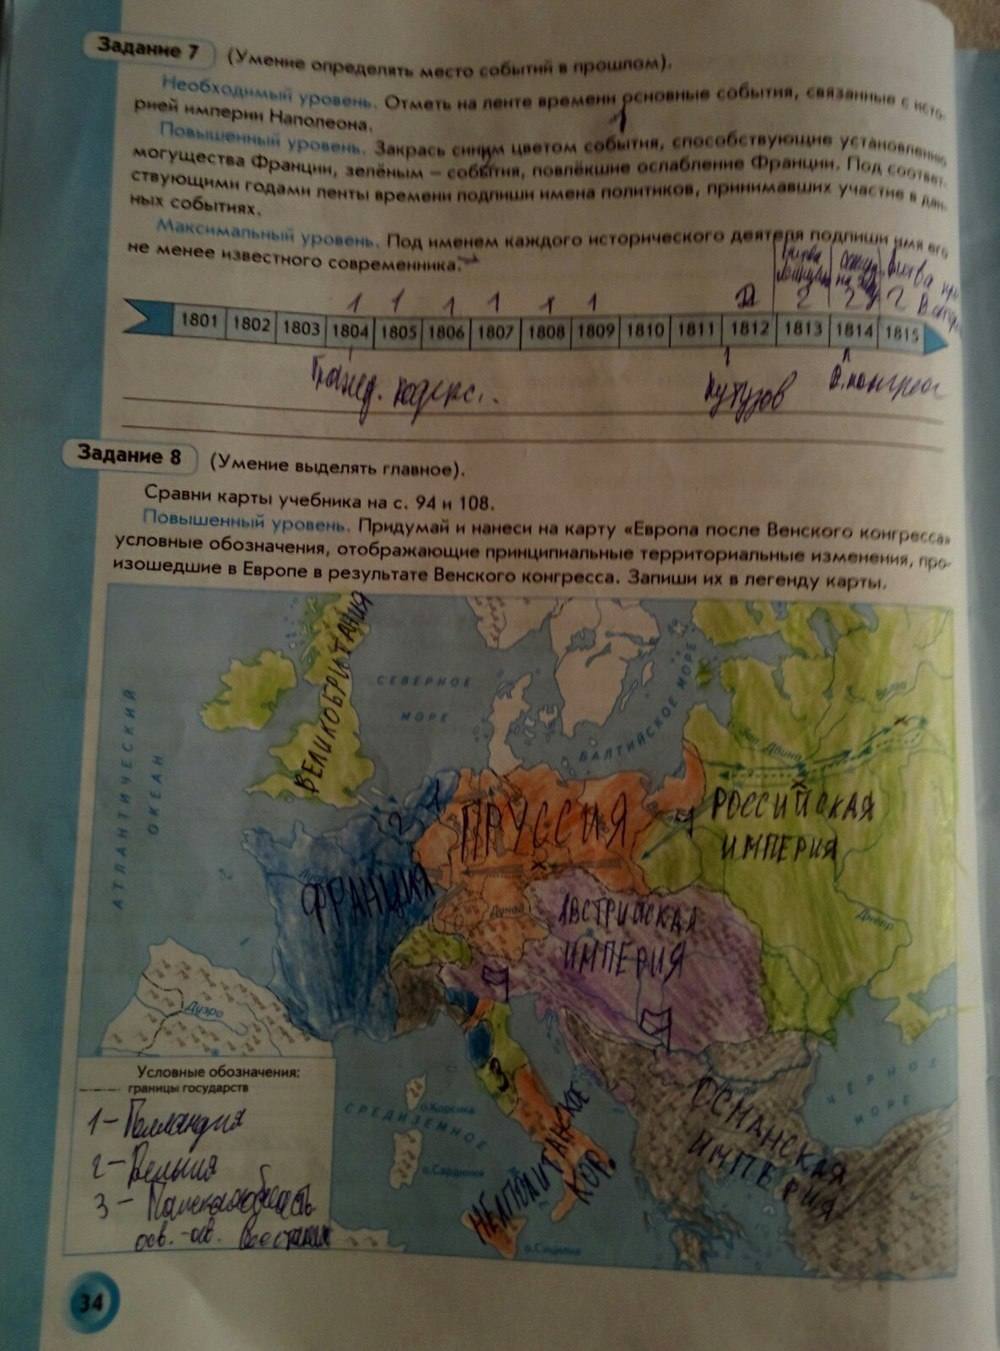 Задание 7 (Умение определять место событий в прошлом).
Необходимый уровень. Отметь на ленте времени основные события, связанные с исто-
рией империи Наполеона.
Повышенный уровень. Закрась синим цветом события, способствующие установлению
могущества Франции, зелёным – события, повлёкшие ослабление Франции. Под соответ-
ствующими годами ленты времени подпиши имена политиков, принимавших участие в дан-
ных событиях.
Максимальный уровень. Под именем каждого исторического деятеля подпиши имя его
не менее известного современника.
Битва
на
Битва при
1 1 1 1 1 1 2 2 2
1801 1802 1803 1804 1805 1806 1807 1808 1809 1810 1811 1812 1813 1814 1815
Гражд. кодекс.
Кутузов
В. конгресс
Задание 8 (Умение выделять главное).
Сравни карты учебника на с. 94 и 108.
Повышенный уровень. Придумай и нанеси на карту «Европа после Венского конгресса»
условные обозначения, отображающие принципиальные территориальные изменения, про-
изошедшие в Европе в результате Венского конгресса. Запиши их в легенду карты.
АТЛАНТИЧЕСКИЙ
ОКЕАН
ВЕЛИКОБРИТАНИЯ
СЕВЕРНОЕ
МОРЕ
БАЛТИЙСКОЕ МОРЕ
Зап. Двина
Волга
1
2
ПРУССИЯ
РОССИЙСКАЯ
ИМПЕРИЯ
ФРАНЦИЯ
Дунай
АВСТРИЙСКАЯ
ИМПЕРИЯ
Днепр
Дуэро
3
о.Корсика
СРЕДИЗЕМНОЕ
о.Сардиния
НЕАПОЛИТАНСКОЕ
КОР.
о.Сицилия
ОСМАНСКАЯ
ИМПЕРИЯ
ЧЕРНОЕ
МОРЕ
Условные обозначения:
границы государств
1 – Голландия
2 – Бельгия
3 – Папская область
34